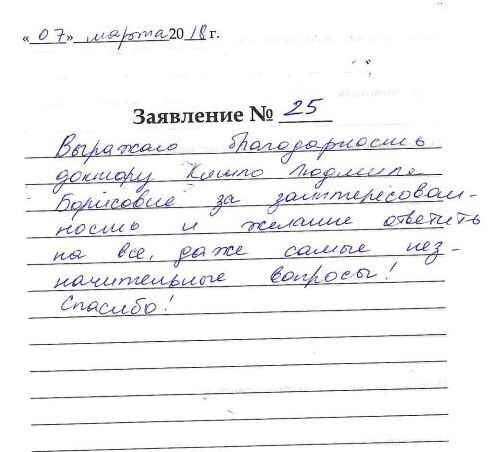 «07» марта 2018 г.
Заявление № 25
Выражаю благодарность
доктору Кляпо Людмиле
Борисовне за заинтересован-
ность и желание ответить
на все, даже самые нез-
начительные вопросы!
Спасибо!